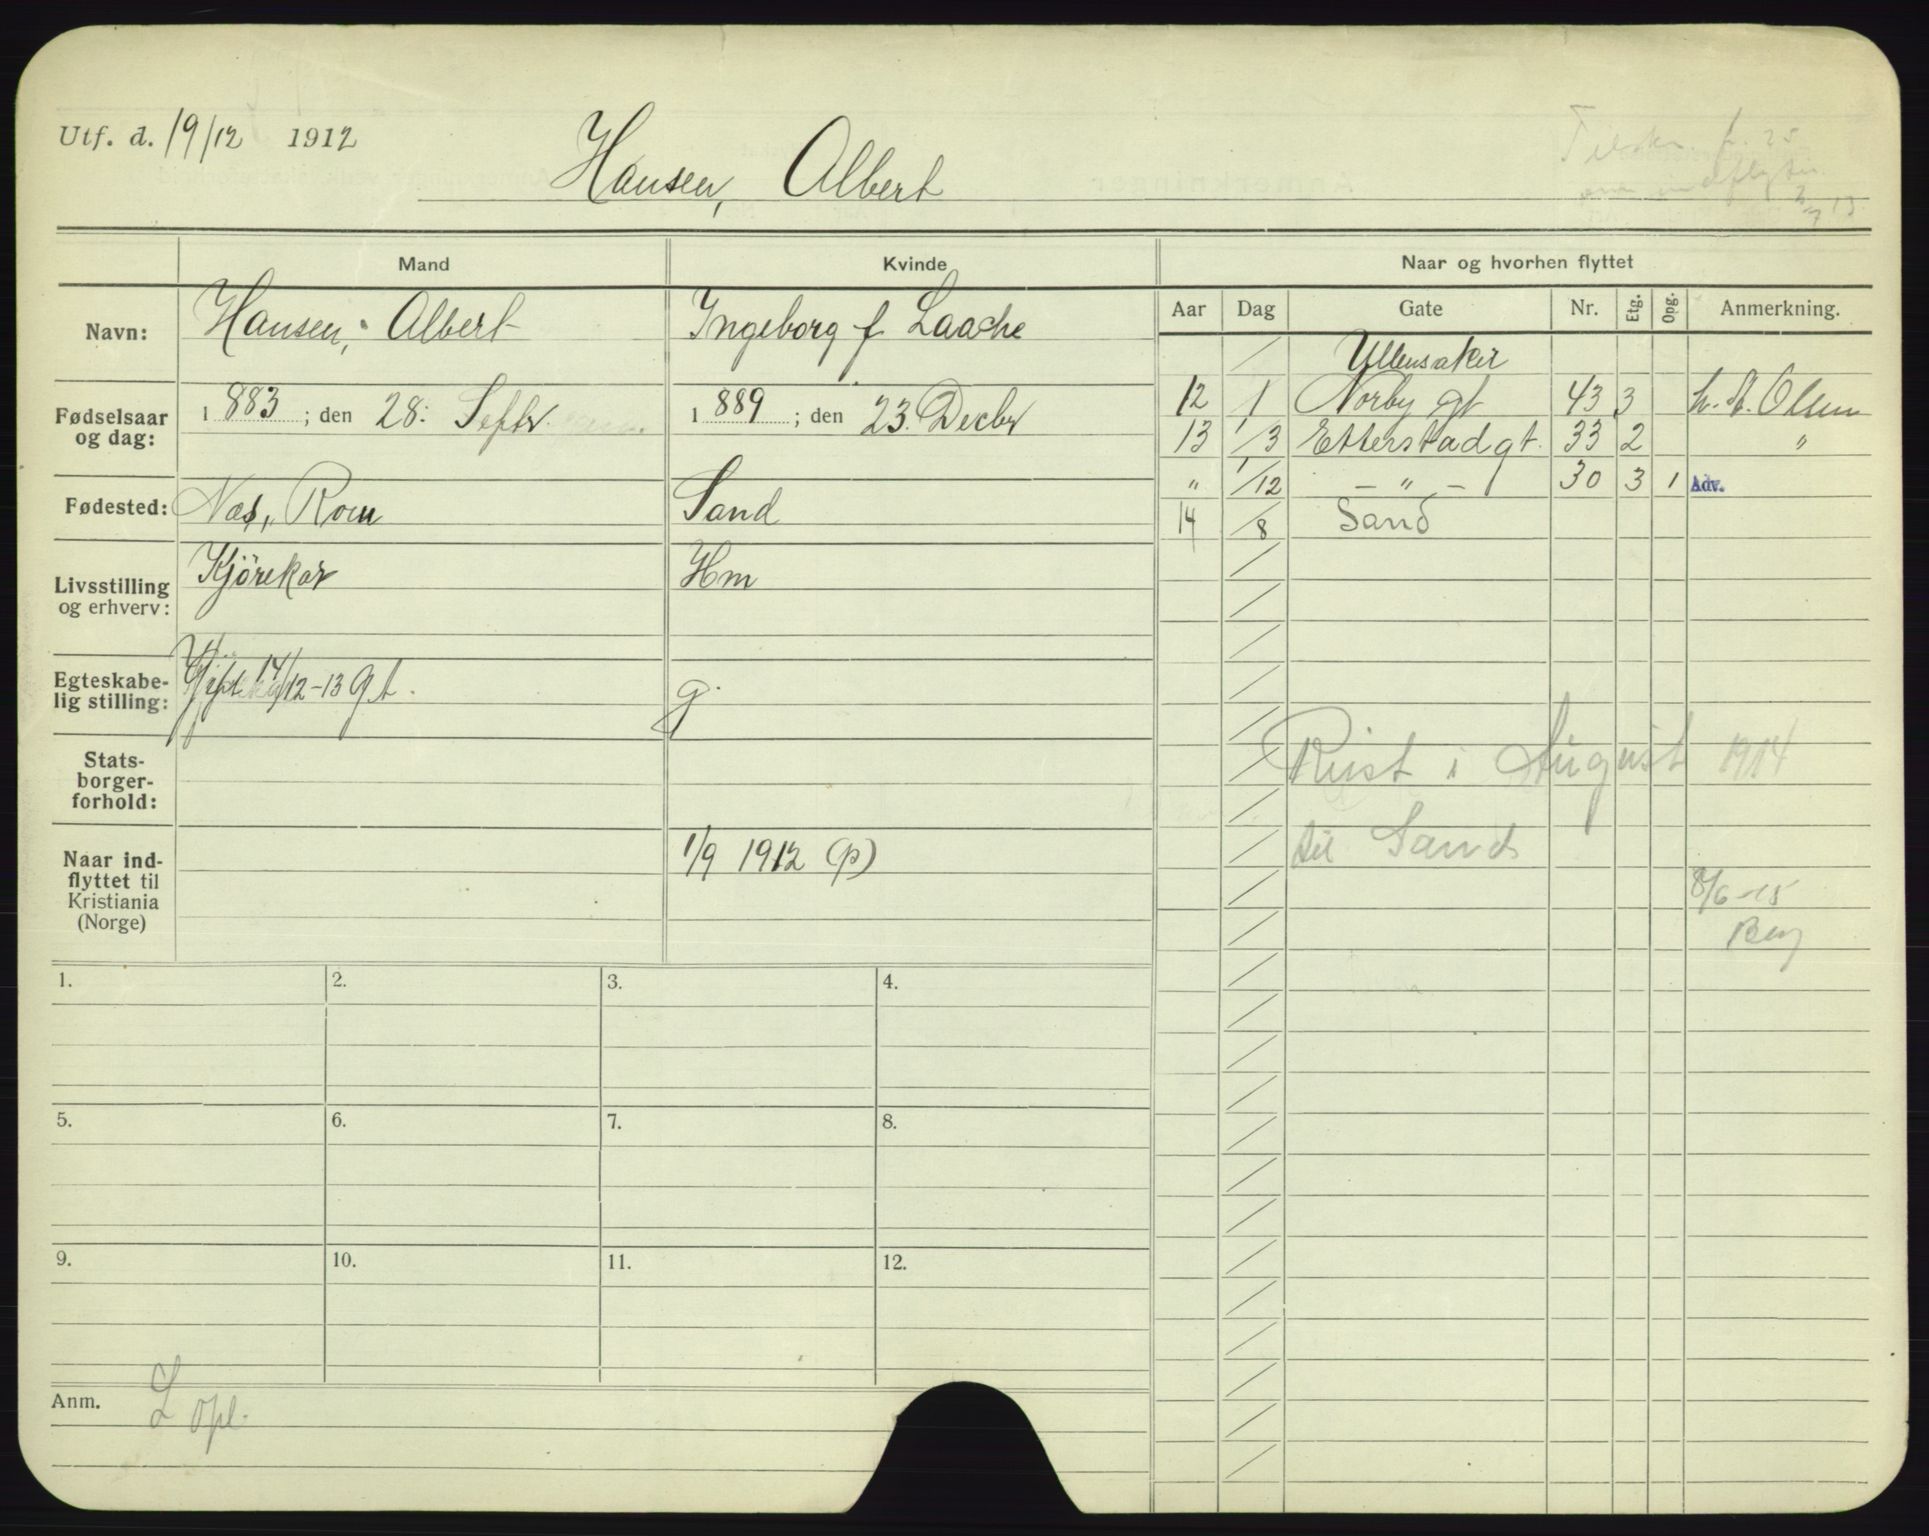 Utf. d. 19/12 1912
Hansen, Albert
Mand
Kvinde
Naar og hvorhen flyttet
Navn:
Hansen, Albert
Ingeborg f. Laache
Aar Dag Gate Nr. Etg. Opg. Anmerkning.
/ Ullensaker
12 /1 Norby gt 43 3 h. A. Olsen
13 1/3 Etterstadgt. 33 2 "
" 1/12 — " — 30 3 1 Adv.
14 /8 Sand
Fødselsaar
og dag:
i 1883 ; den 28. Septbr.
i 1889 ; den 23. Decbr
Fødested:
Næs, Rom
Sand
Livsstilling
og erhverv:
Kjørekar
Hm
Egteskabe-
lig stilling:
Gift 14/12-13 gt.
g.
Stats-
borger-
forhold:
Reist i August 1914
til Sand
8/6-15
Berg
Naar ind-
flyttet til
Kristiania
(Norge)
1/9 1912 (p)
1. 2. 3. 4.
5. 6. 7. 8.
9. 10. 11. 12.
Anm.
L opl.